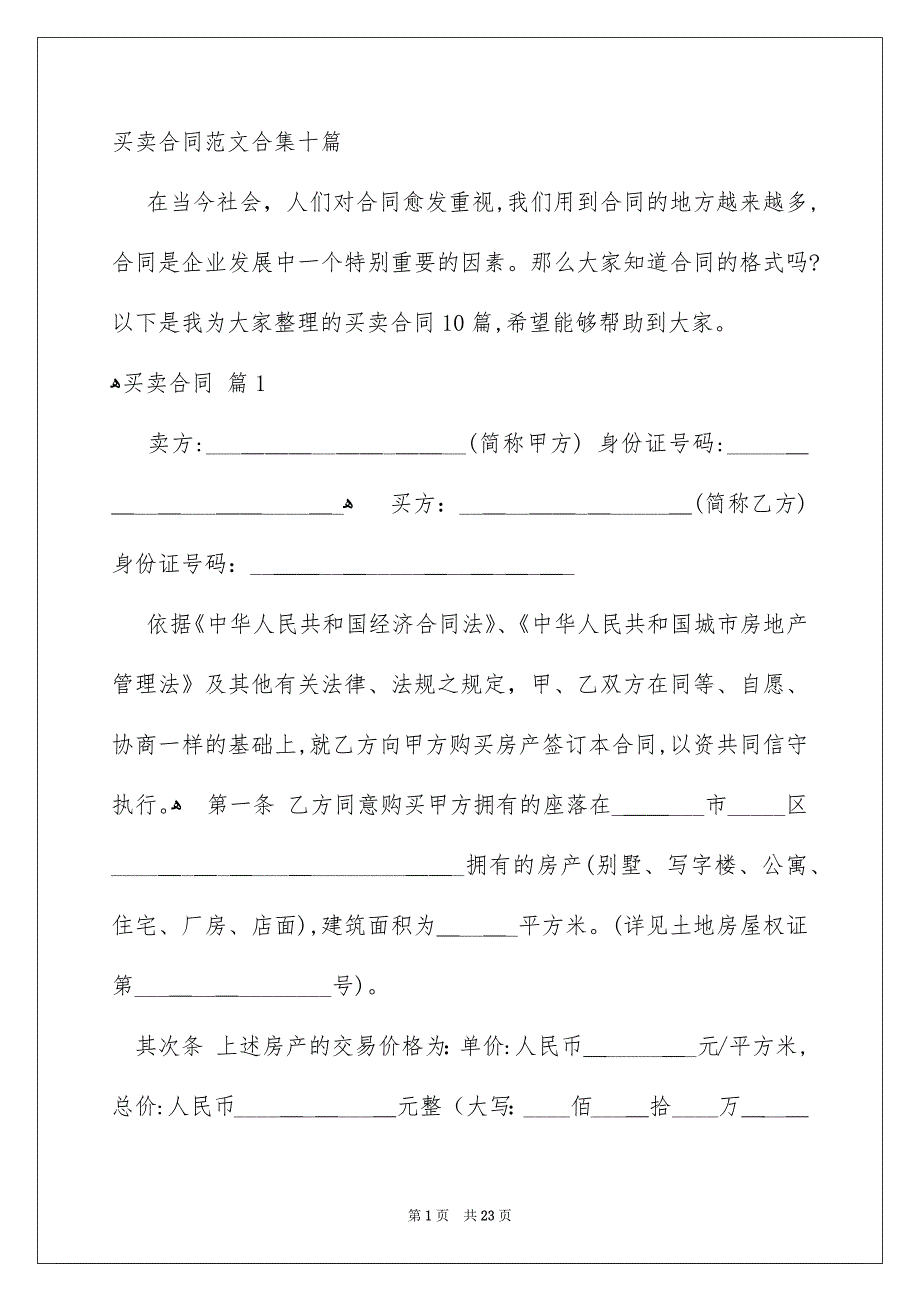 买卖合同范文合集十篇
在当今社会，人们对合同愈发重视,我们用到合同的地方越来越多,
合同是企业发展中一个特别重要的因素。那么大家知道合同的格式吗?
以下是我为大家整理的买卖合同10篇,希望能够帮助到大家。
ﻬ买卖合同 篇1
卖方:______________________(简称甲方) 身份证号码:_______
____________________ﻬ 买方：____________________(简称乙方)
身份证号码：____________________________
依据《中华人民共和国经济合同法》、《中华人民共和国城市房地产
管理法》及其他有关法律、法规之规定，甲、乙双方在同等、自愿、
协商一样的基础上,就乙方向甲方购买房产签订本合同,以资共同信守
执行。ﻬ 第一条 乙方同意购买甲方拥有的座落在________市_____区
______________________________拥有的房产(别墅、写字楼、公寓、
住宅、厂房、店面),建筑面积为_______平方米。(详见土地房屋权证
第_________________号)。
其次条 上述房产的交易价格为：单价:人民币__________元/平方米,
总价:人民币________________元整（大写：____佰_____拾____万______
第1页 共23页